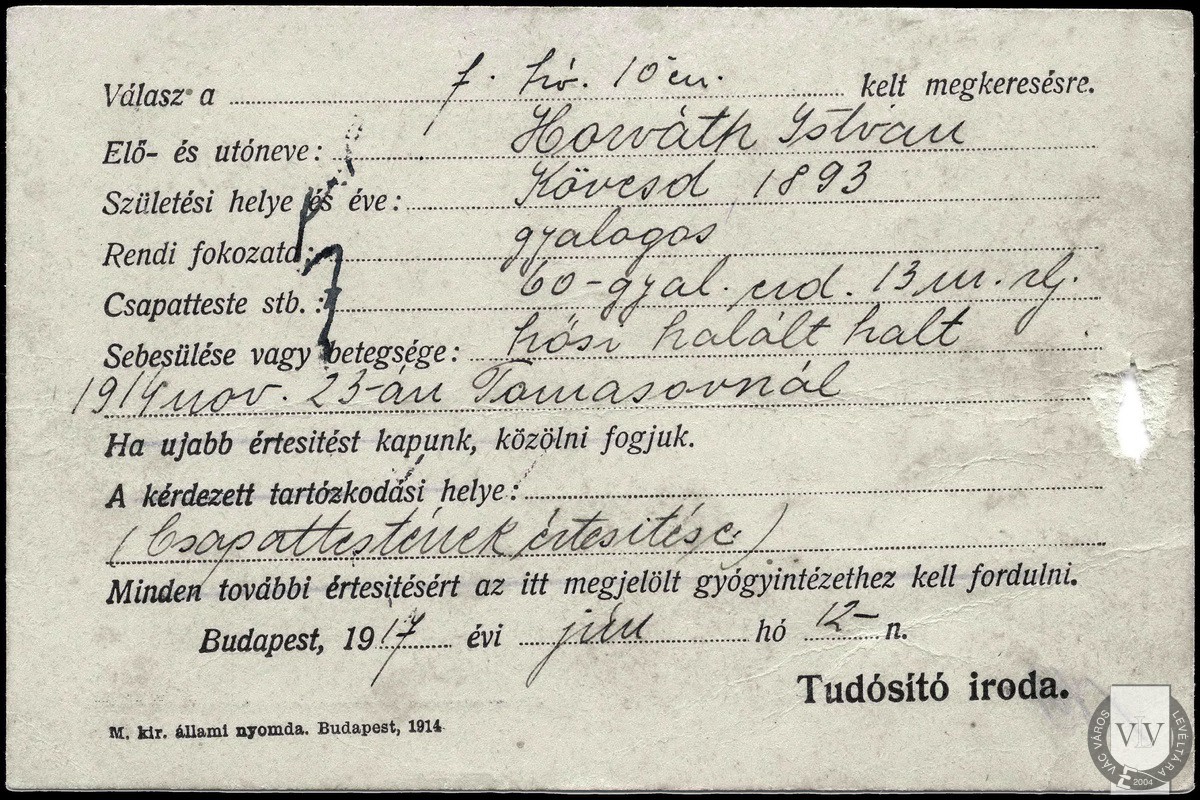 Válasz a f. hó. 10 én. kelt megkeresésre.
Elő- és utóneve: Horváth István
Születési helye és éve: Kövesd 1893
Rendi fokozata: gyalogos
Csapatteste stb.: 60-gyal. ezd. 13 m. szj.
Sebesülése vagy betegsége: hősi halált halt
1914 nov. 23-án Tomasovnál
Ha ujabb értesitést kapunk, közölni fogjuk.
A kérdezett tartózkodási helye:
(Csapattestének értesitése)
Minden további értesitésért az itt megjelölt gyógyintézethez kell fordulni.
Budapest, 1917 évi jún hó 12- n.
Tudósító iroda.
M. kir. állami nyomda. Budapest, 1914
VÁC VÁROS LEVÉLTÁRA
VLV
2004